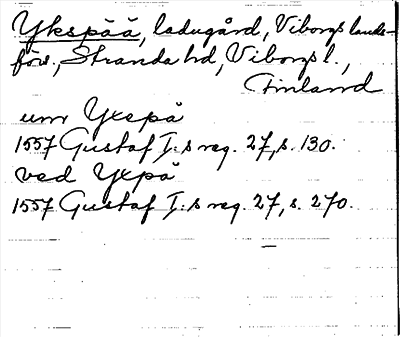 Ykspää, ladugård, Viborgs lands-
förs., Stranda hd, Viborgs l.,
Finland
um Yxspå
1557 Gustaf I:s reg. 27, s. 130.
ved Yxpå
1557 Gustaf I:s reg. 27, s. 270.